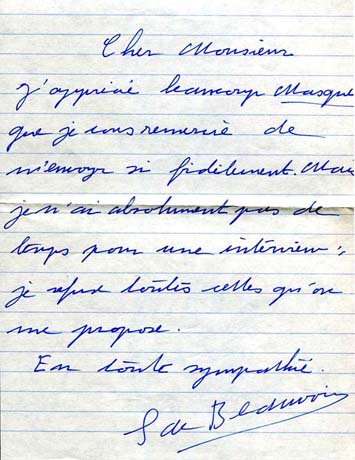 Cher Monsieur
J'apprécie beaucoup Masque
que je vous remercie de
m'envoyer si fidèlement. Mais
je n'ai absolument pas de
temps pour une interview ;
je refuse toutes celles qu'on
me propose.
En toute sympathie.
S de Beauvoir